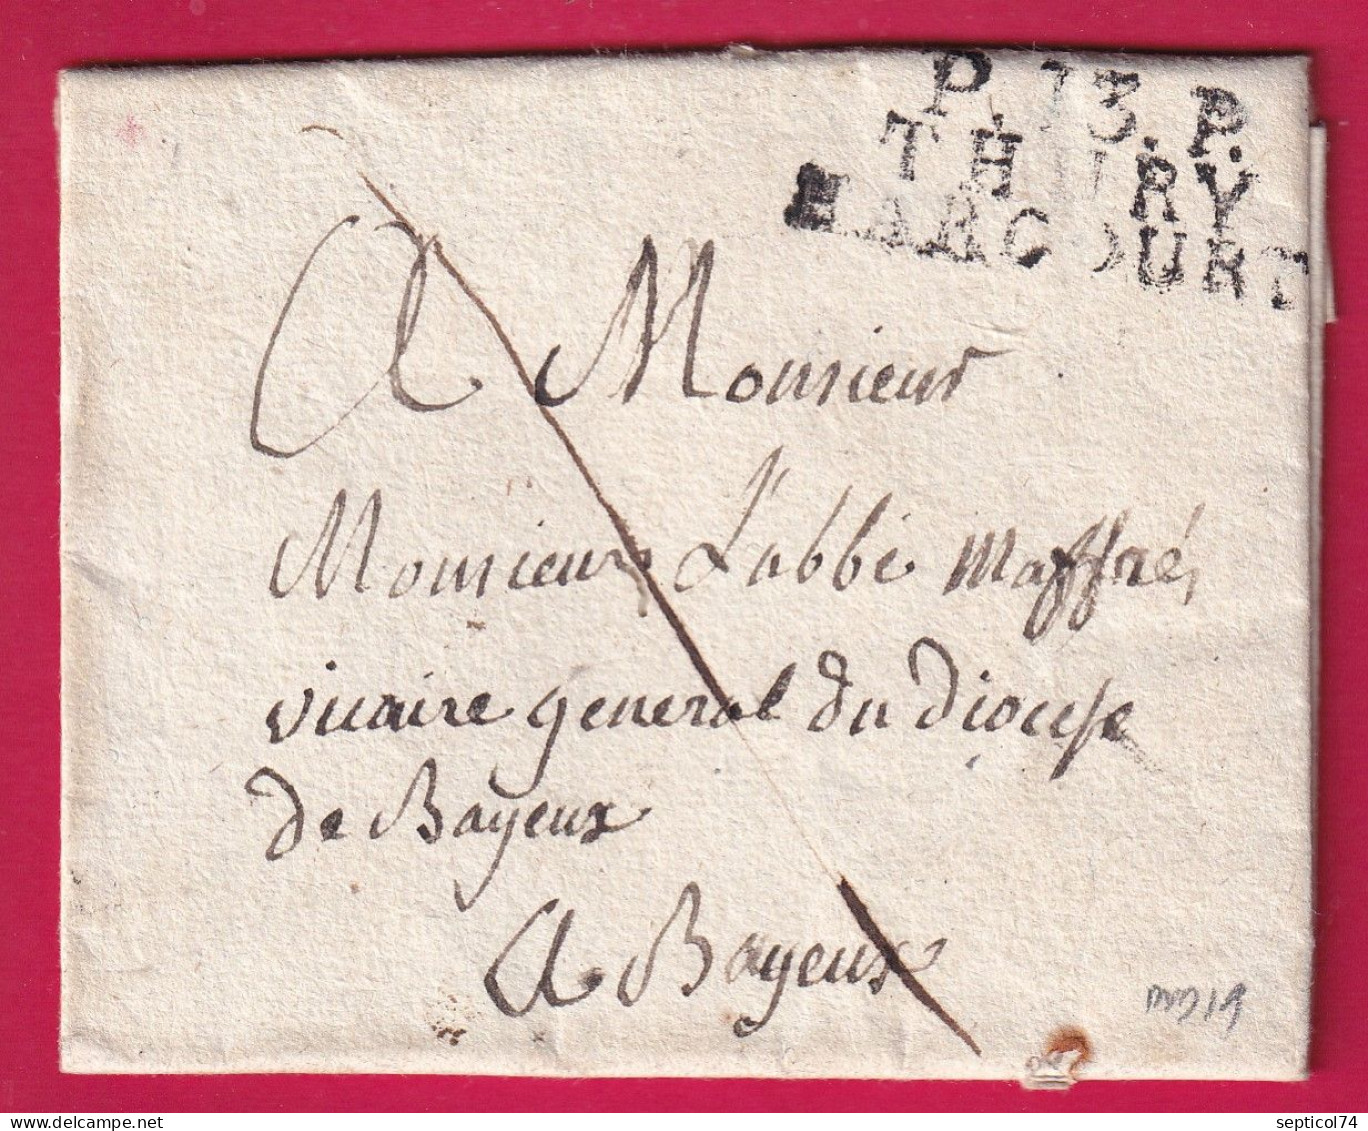 P. 13. P.
THURY
HARCOURT
A Monsieur
Monsieur L'abbé Maffré,
vicaire general du diocese
de Bayeux
A Bayeux
septicol74